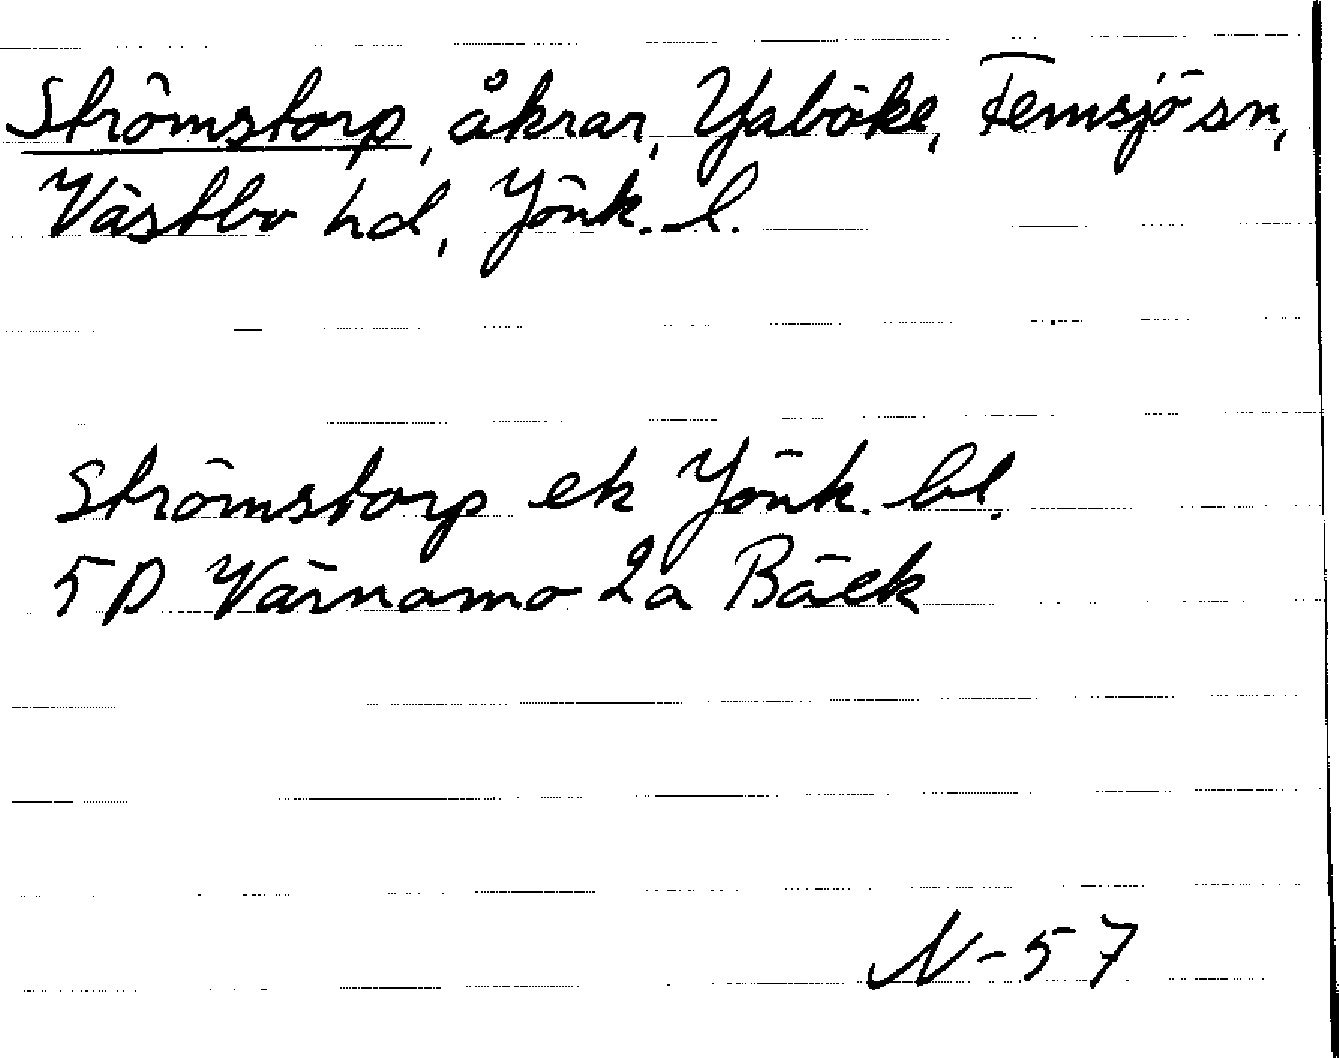 Strömstorp, åkrar, Yaböke, Femsjö sn,
Västbo hd, Jönk. l.
Strömstorp ek Jönk. bl.
5D Värnamo 2a Bäck
N-57